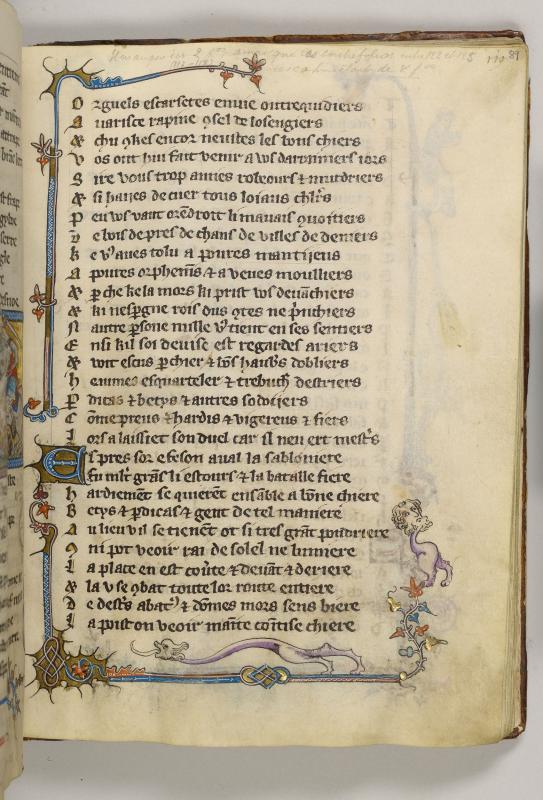 89
Orguels escarsetes enuie outrequidiers
Auarisce rapine ꝯsel de losengiers
& chu ꝯkes encor neustes les bons chiers
Vos ont hui fait venir a vos daronniers iors
Sire vous trop amies roteours & murdriers
& si haues de cuer tous loiaus chl'rs
Peu vos vaut orēdroit li mauais quoitiers
e bois de pres de chans de villes de deniers
ke v' aues tolu a poures mantiers
A poures orphenins & a veues moulliers
& ꝑ che ke la mors ki prist vos deuāchiers
& ki nespgne rois dus ꝯtes ne p'nchiers
Nautre ꝑsone nulle v' tient en ses sentiers
Ensi kil soi deuise est regardes ariers
& voit escus ꝑchier & bōs haub's dobliers
heaumes esquarteler & trebuch' destriers
ꝑdicas & betys & autres sodoiers
Cōme preus & hardis & vigereus & fiers
Lors a laissiet son duel car il neu ert mest's
Es pres sor efeson aual la sabloniere
Fu ml't grās li estours & la bataille fiere
hardiemēt se quierēt ensāble a bōne chiere
Betys & ꝑdicas & gent de tel maniere
Au lieu v il se tienēt ot si tres grāt pourriere
Qni pot veoir rai de solel ne lumiere
La place en est cou'te & deuāt & deriere
& la v se ꝯbat toute lor route entiere
De dest's abat' & dōmes mors sens biere
La puist on veoir mainte cointise chiere